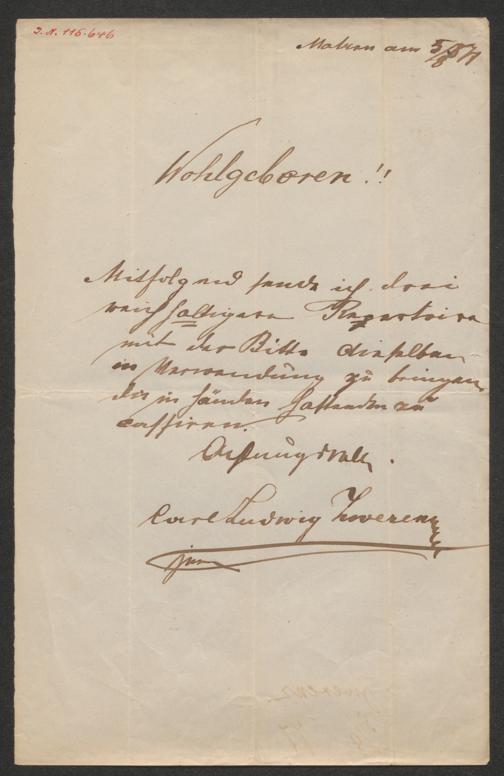 I.N. 115.646
am 5/8
Wohlgeboren!!
Mitfolgend sende ich drei
reichhaltigere Repertoire
mit der Bitte dieselben
in Verwendung zu bringen
die in Händen zu
cassiren.
Achtungsvoll.
Carl Ludwig Zwerenz
jun